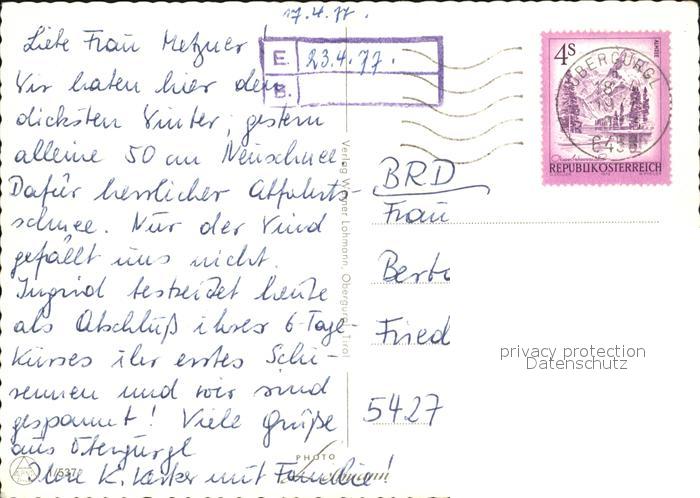 17.4.77.
Liebe Frau Metzner!
Wir haben hier den
dicksten Winter, gestern
alleine 50 cm Neuschnee
Dafür herrlicher Abfahrts-
schnee. Nur der Wind
gefällt uns nicht.
Ingrid bestreitet heute
als Abschluß ihres 6-Tage-
Kurses ihr erstes Schi-
rennen und wir sind
gespannt! Viele Grüße
aus Obergurgl
Ihre K. mit Familie!
E. 23.4.77.
B.
Verlag Werner Lohmann, Obergurgl, Tirol
4S
ALMSEE
REPUBLIK ÖSTERREICH
OBERGURGL
18
6456
BRD
Frau
Berta
Fried
5427
privacy protection
Datenschutz
PHOTO
Lohmann
1/537